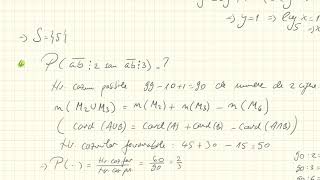 → y=1 ⇒ log x = 1
→ S={5}
P( ab ⋮ 2 sau ab ⋮ 3) = ?
Nr. cazuri posibile 99-10+1=90 de numere de 2 cifre
n(M₂∪M₃) = n(M₂) + n(M₃) - n(M₆)
(card(A∪B) = card(A) + card(B) - card(A∩B))
Nr cazurilor favorabile: 45 + 30 - 15 = 60
⇒ P(·) = = 60/90 = 2/3
90:2
90:3